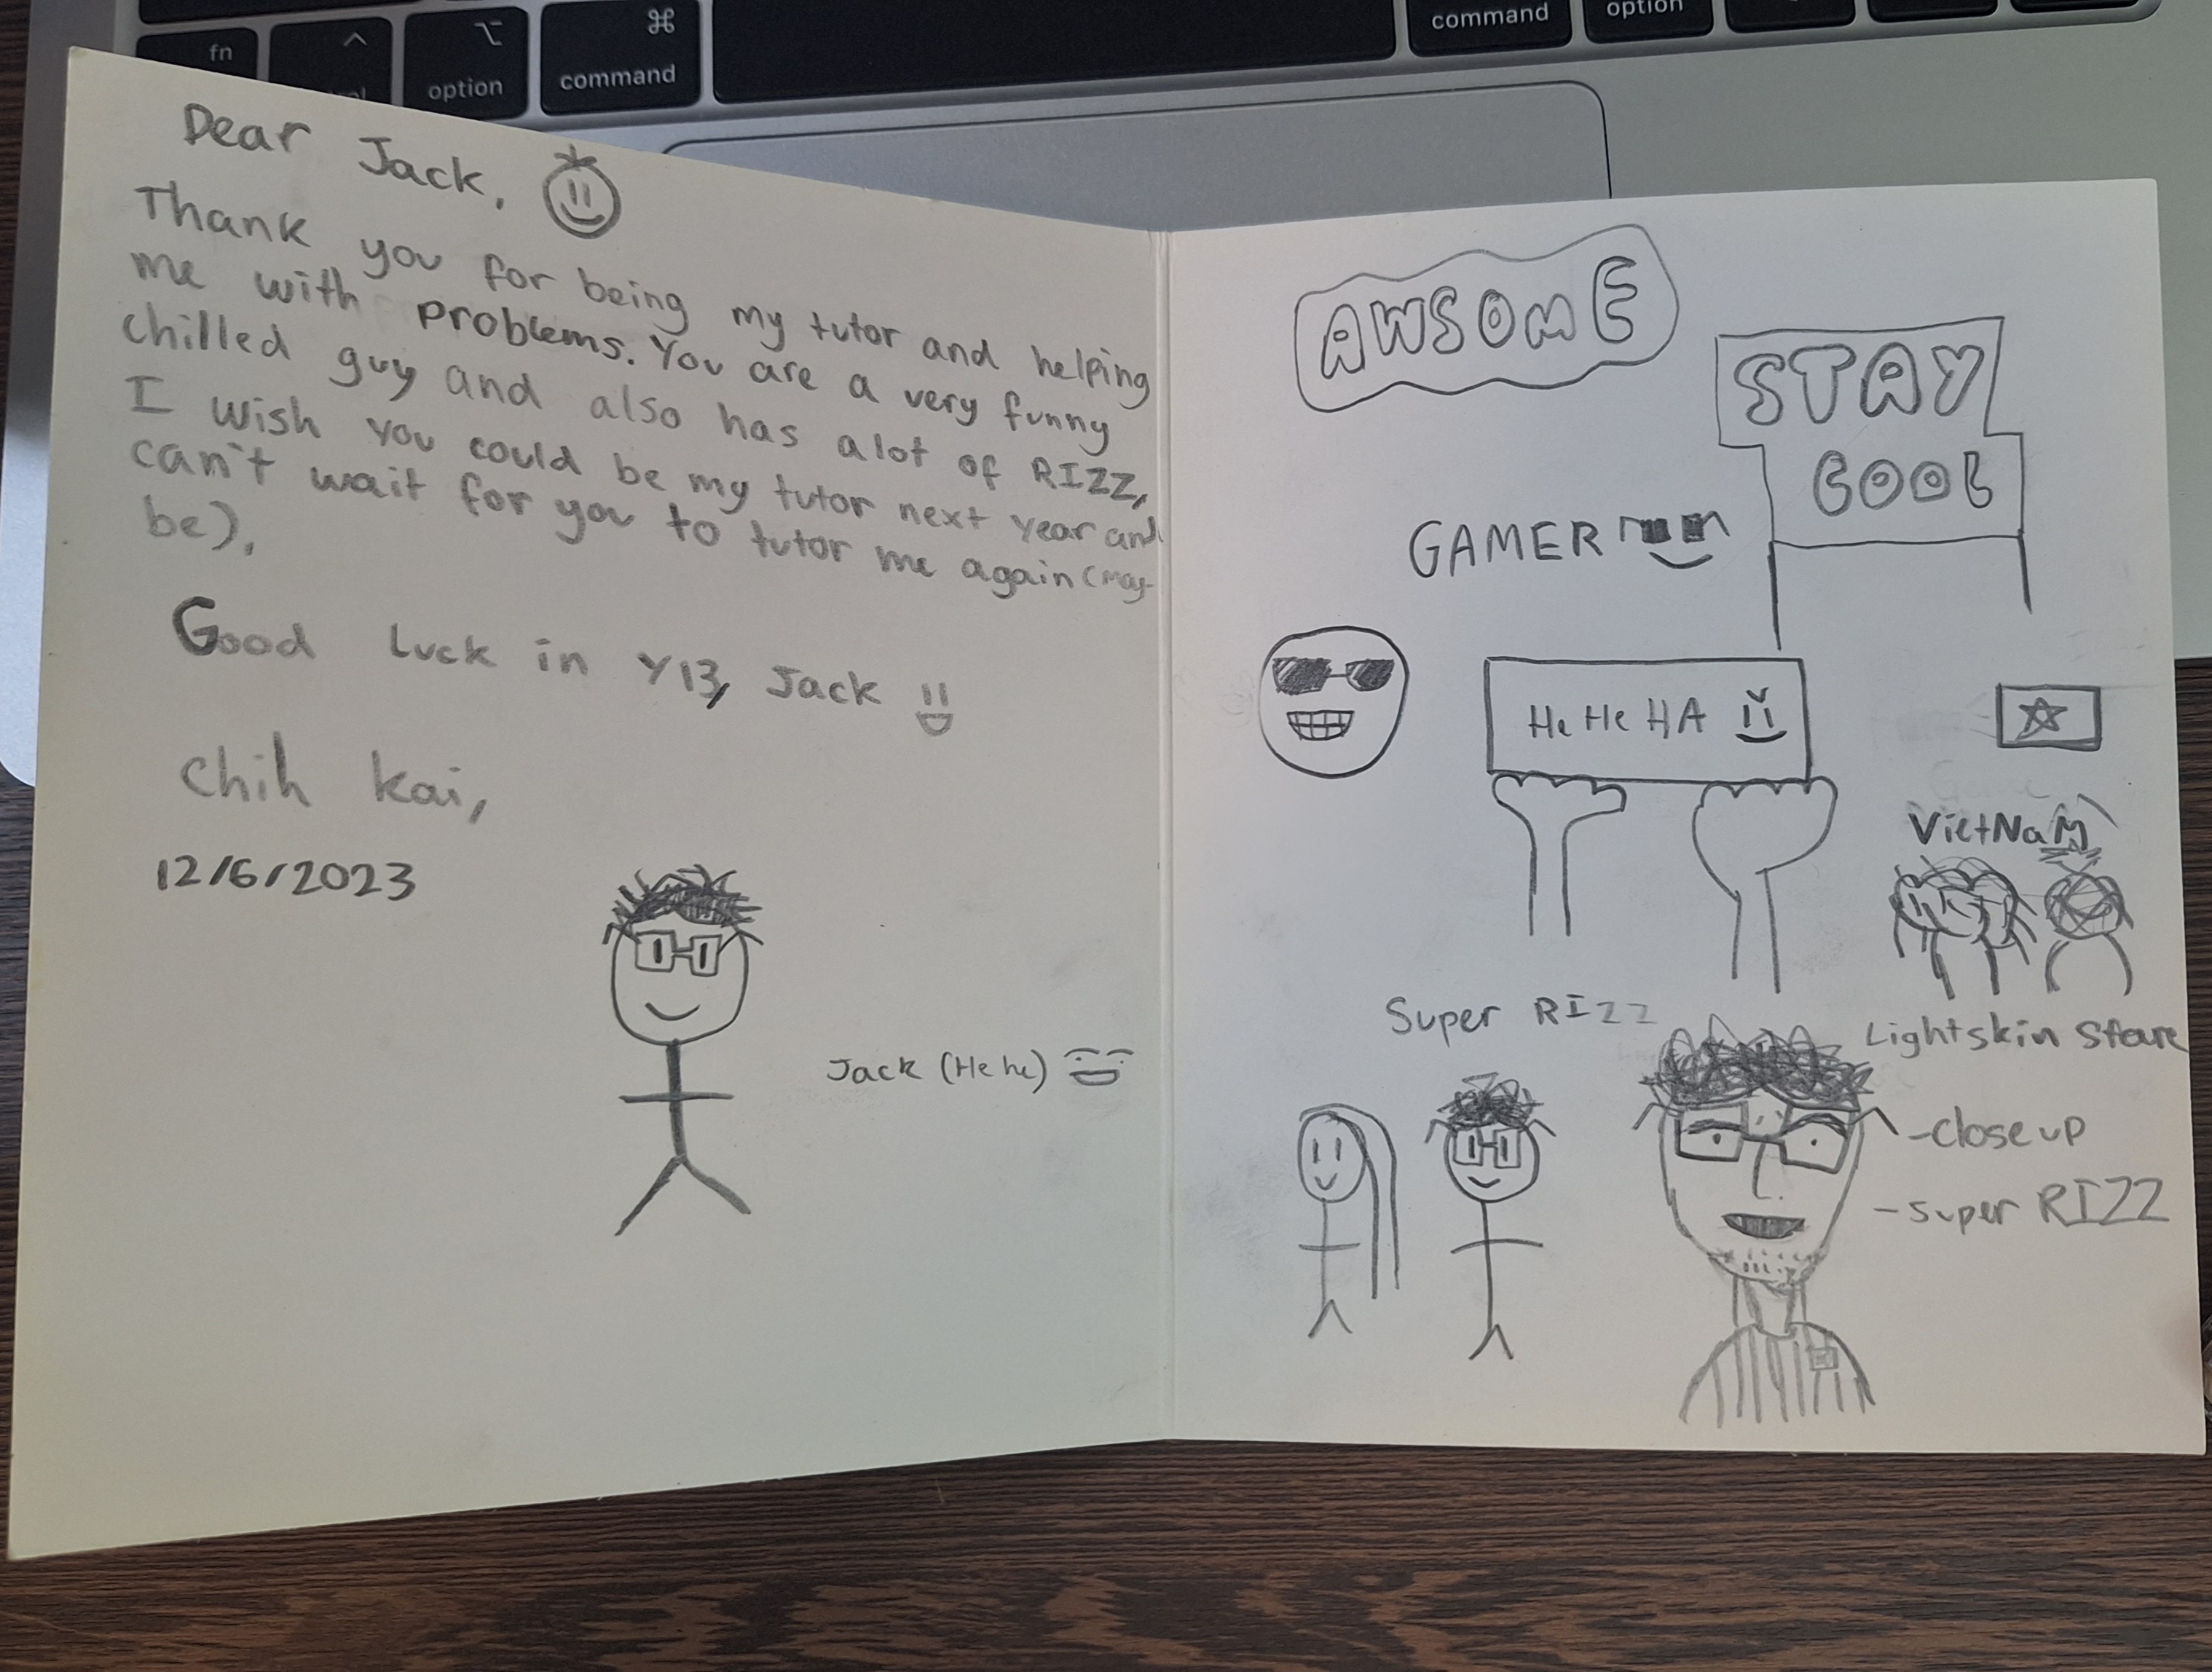 fn
option
⌘
command
command
option
Dear Jack,
Thank you for being my tutor and helping
me with problems. You are a very funny
chilled guy and also has alot of RIZZ,
I wish you could be my tutor next year and
can't wait for you to tutor me again (may-
be),
Good Luck in Y13, Jack
Chih kai,
12/6/2023
Jack (He he)
AWSOME
STAY
COOL
GAMER
He He HA
VietNaM
Super RIZZ
Lightskin Stare
-close up
-super RIZZ